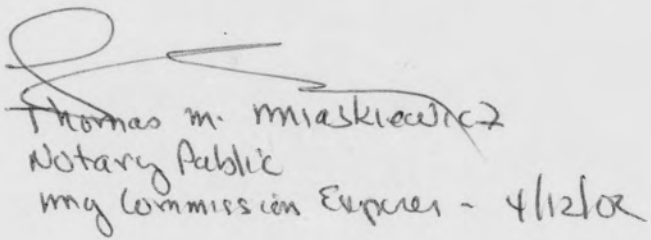 Thomas M. Miaskiewicz
Notary Public
My Commission Expires - 4/12/02